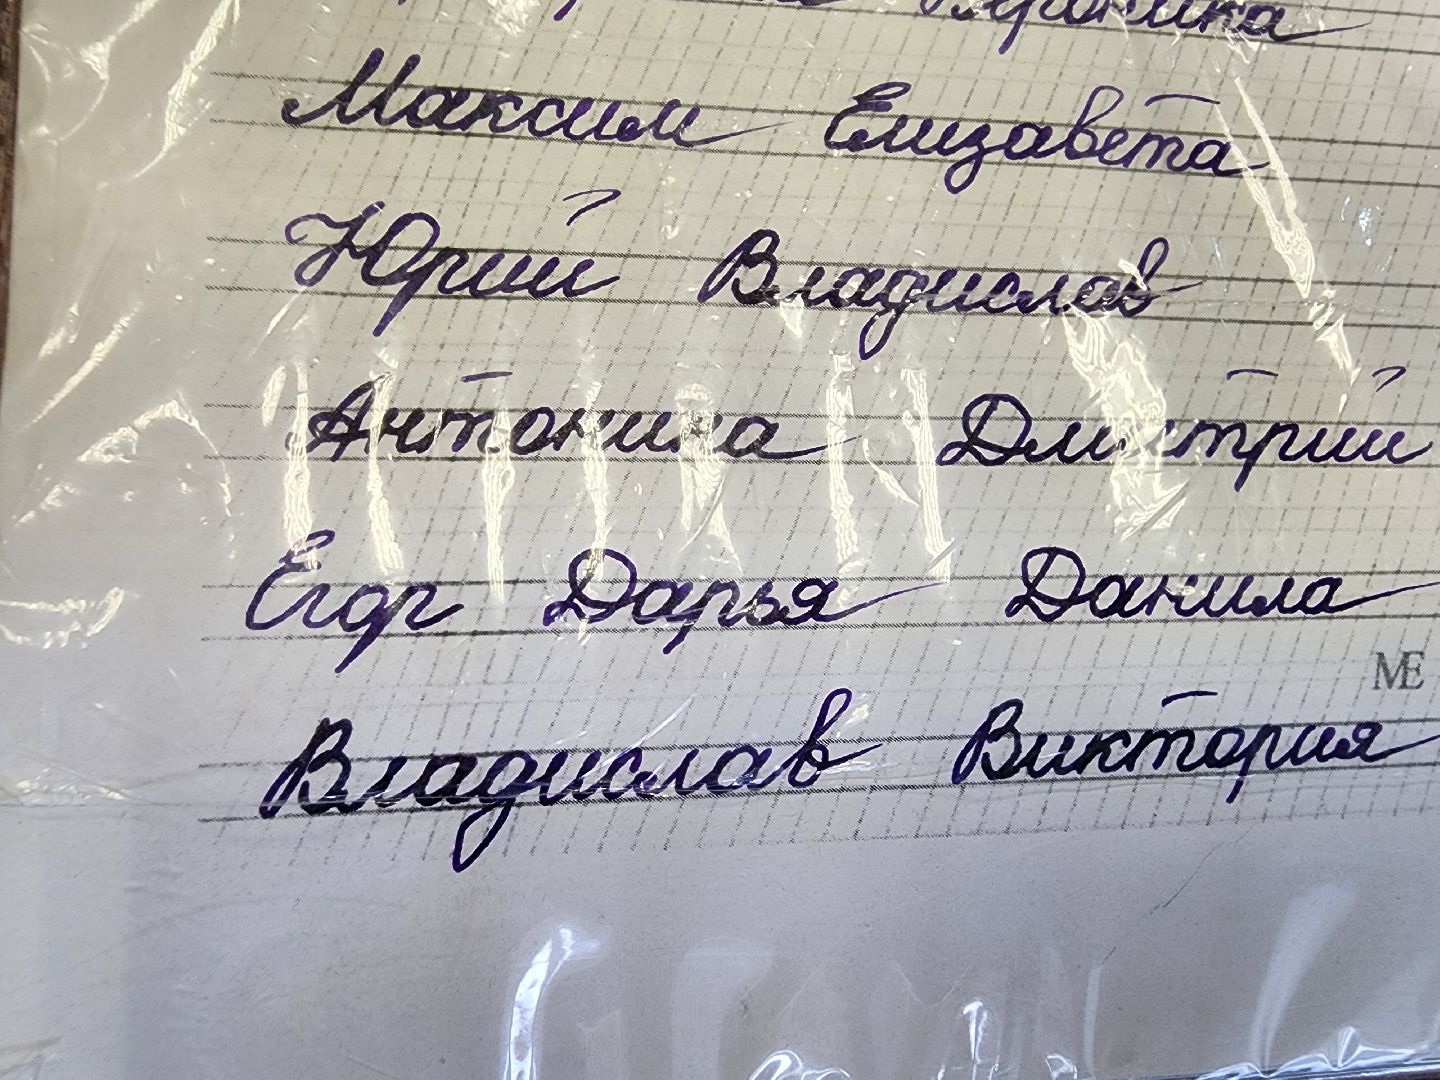 Вероника
Максим Елизавета
Юрий Владислав
Антонина Дмитрий
Егор Дарья Данила
ME
Владислав Виктория